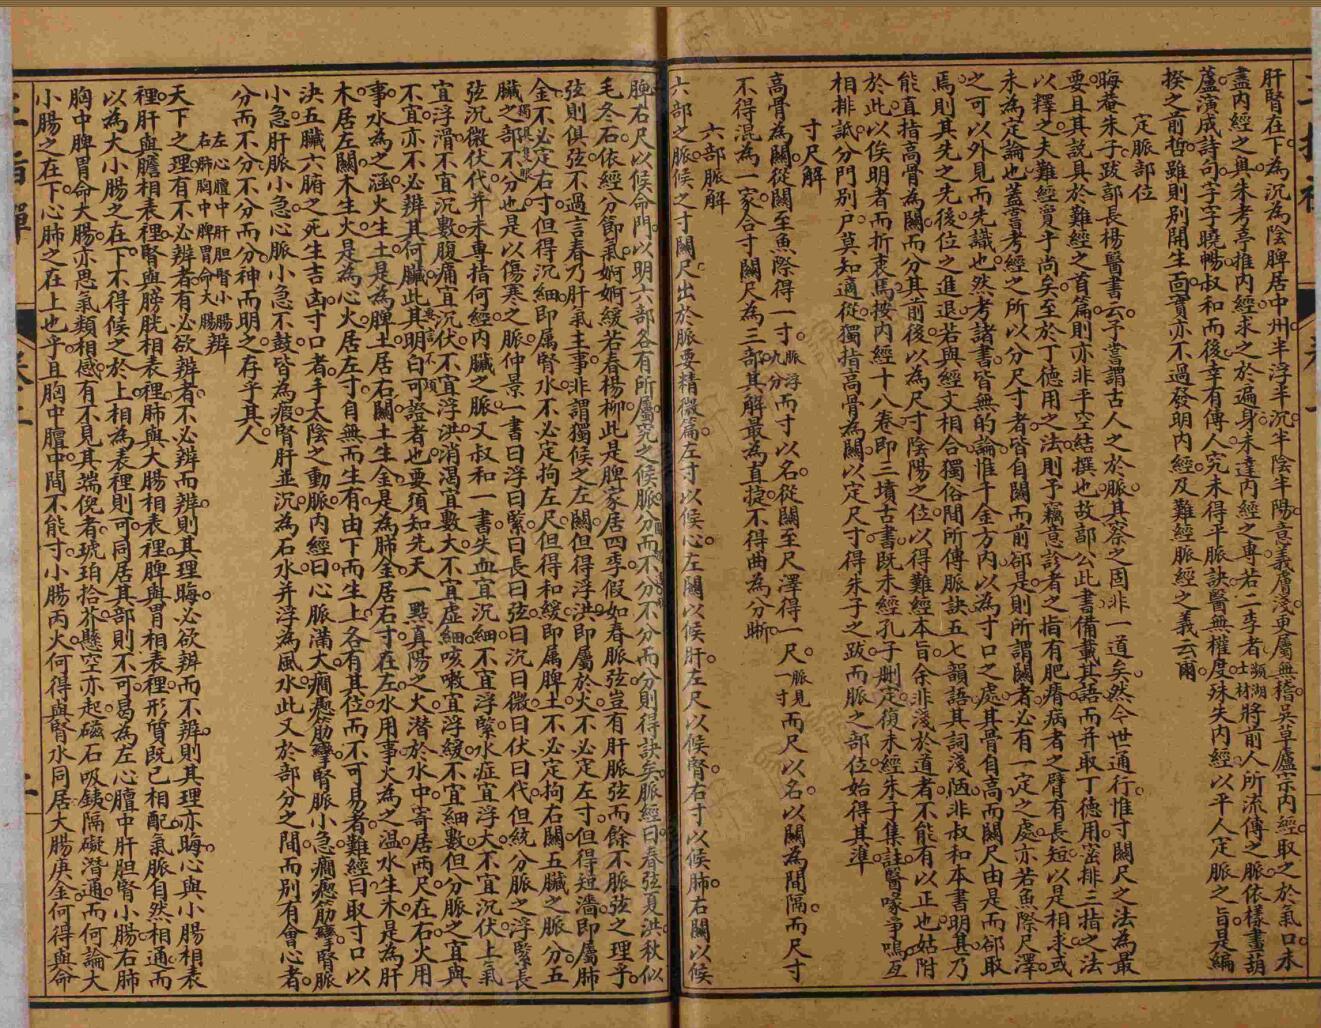 肝腎在下為沉為陰脾居中州半浮半沉半陰半陽意義膚淺更屬無稽吳草廬宗內經取之於氣口未
盡內經之奧朱考亭推內經求之於遍身未達內經之專若二李者瀕湖士材將前人所流傳之脈依樣畫葫
蘆演成詩句字字曉暢叔和而後幸有傳人究未得平脈訣醫無權度殊失內經以平人定脈之旨是編
揆之前哲雖則別開生面實亦不過發明內經及難經脈經之義云爾
定脈部位
晦菴朱子跋郭長楊醫書云予嘗謂古人之於脈其察之固非一道矣然今世通行惟寸關尺之法為最
要且其說具於難經之首篇則亦非平空結撰也故郭公此書備載其語而并取丁德用密排三指之法
以釋之夫難經賣乎尚矣至於丁德用之法則予竊意診者之指有肥瘠病者之臂有長短以是相求或
未為定論也蓋嘗考經之所以分尺寸者皆自關而前卻是則所謂關者必有一定之處亦若魚際尺澤
之可以外見而先識也然考諸書皆無的論惟千金方內以為寸口之處其骨自高而關尺由是而卻取
焉則其先之先後位之進退若與經文相合獨俗間所傳脈訣五七韻語其詞淺陋非叔和本書明甚乃
能直指高骨為關而分其前後以為尺寸陰陽之位以得難經本旨余非淺於道者不能有以正也姑附
於此以俟明者而折衷焉按內經十八卷即三墳古書既未經孔子刪定復未經朱子集註醫喙爭鳴互
相排詆分門別戶莫知適從獨指高骨為關以定尺寸得朱子之跋而脈之部位始得其準
寸尺解
高骨為關從關至魚際得一寸脈浮九分而寸以名從關至尺澤得一尺脈見一寸而尺以名以關為間隔而尺寸
不得混為一家合寸關尺為三部其解最為直捷不得曲為分晰
六部脈解
六部之脈候之寸關尺出於脈要精微篇左寸以候心左關以候肝左尺以候腎右寸以候肺右關以候
脾右尺以候命門以明六部各有所屬究之候脈分而不分不分而分則得訣矣脈經曰春弦夏洪秋似
毛冬石依經分節氣婀婀緩若春楊柳此是脾家居四季假如春脈弦豈有肝脈弦而餘不脈弦之理乎
弦則俱弦不過言春乃肝氣主事非謂獨候之左關但得浮洪即屬於火不必定左寸但得短濇即屬肺
金不必定右寸但得沉細即屬腎水不必定拘左尺但得和緩即屬脾土不必定拘右關五臟之脈分五
臟之部不分也是以傷寒之脈仲景一書曰浮曰緊曰長曰弦曰沉曰微曰伏曰代但統分脈之浮緊長
弦沉微伏代并未專指何經內臟之脈又叔和一書失血宜沉細不宜浮緊水症宜浮大不宜沉伏上氣
宜浮滑不宜沉數腹痛宜沉伏不宜浮洪消渴宜數大不宜虛細咳嗽宜浮緩不宜細數但分脈之宜與
不宜亦不必辨其何臟此其明白可證者也要須知先天一點真陽之火潛於水中寄居兩尺在右火用
事水為之涵火生土是為脾土居右關土生金是為肺金居右寸在左水用事火為之溫水生木是為肝
木居左關木生火是為心火居左寸自無而生有由下而生上各有其位而不可易者難經曰取寸口以
決五臟六腑之死生吉凶寸口者手太陰之動脈內經曰心脈滿大癎瘛筋攣腎脈小急癎瘛筋攣腎脈
小急肝脈小急心脈小急不鼓皆為瘕腎肝並沉為石水并浮為風水此又於部分之間而別有會心者
分而不分不分而分神而明之存乎其人
左心膻中肝胆腎小腸右肺胸中脾胃命大腸辨
天下之理有不必辨者有必欲辨者不必辨而辨則其理晦必欲辨而不辨則其理亦晦心與小腸相表
裡肝與膽相表裡腎與膀胱相表裡肺與大腸相表裡脾與胃相表裡形質既已相配氣脈自然相通而
以為大小腸之在下不得候之於上相為表裡則可同居其部則不可曷為左心膻中肝胆腎小腸右肺
胸中脾胃命大腸亦思氣類相感有不見其端倪者琥珀拾芥懸空亦起磁石吸鐵隔礙潛通而何論大
小腸之在下心肺之在上也乎且胸中膻中間不能寸小腸丙火何得與腎水同居大腸庚金何得與命